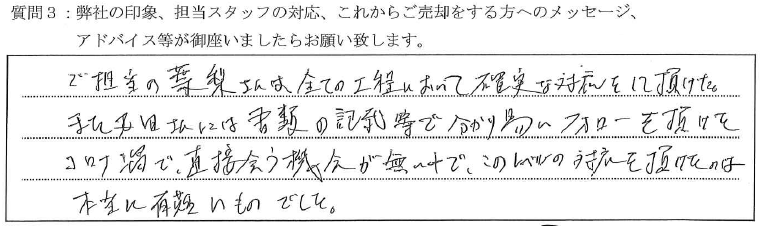 質問3：弊社の印象、担当スタッフの対応、これからご売却をする方へのメッセージ、
アドバイス等が御座いましたらお願い致します。
ご担当の さんは、全ての工程において確実な対応をして頂けた。
また さんには書類の記載等で分かり易いフォローを頂けた
コロナ渦で、直接会う機会が無い中で、このレベルの対応を頂けたのは
本当に有難いものでした。